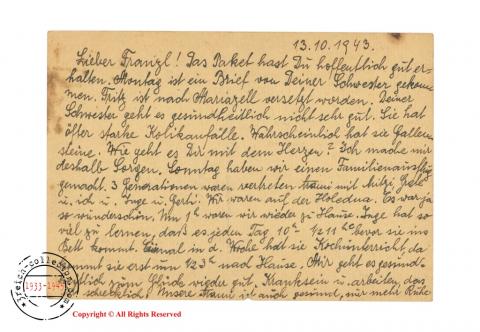 13.10.1943.
Lieber Franzl! Das Paket hast Du hoffentlich gut er-
halten. Montag ist ein Brief von Deiner Schwester gekom
men. Fritz ist nach Mariazell versetzt worden. Deiner
Schwester geht es gesundheitlich nicht sehr gut. Sie hat
öfter starke Kolikanfälle. Wahrscheinlich hat sie Gallen
steine. Wie geht es Dir mit dem Herzen? Ich mache mir
deshalb Sorgen. Sonntag haben wir einen Familienausflug
gemacht. 3 Generationen waren vertreten mit Mitzi,
u. ich u. Inge u. Gerh. Wir waren auf der Holedua. Es war ja
so wunderschön. Um 1h waren wir wieder zu Hause. Inge hat so
viel zu lernen, daß es jeden Tag 10h - 1/2 11h bevor sie ins
Bett kommt. Einmal in d. Woche hat sie Kochunterricht da
kommt sie erst um 1/2 3h nach Hause. Mir geht es gesund
heitlich zum Glück wieder gut. Kranksein u. arbeiten, das
schrecklich. Unsere auch gesund, nur mehr Ruhe
3reich-collector.com
1933-1945
Copyright © All Rights Reserved